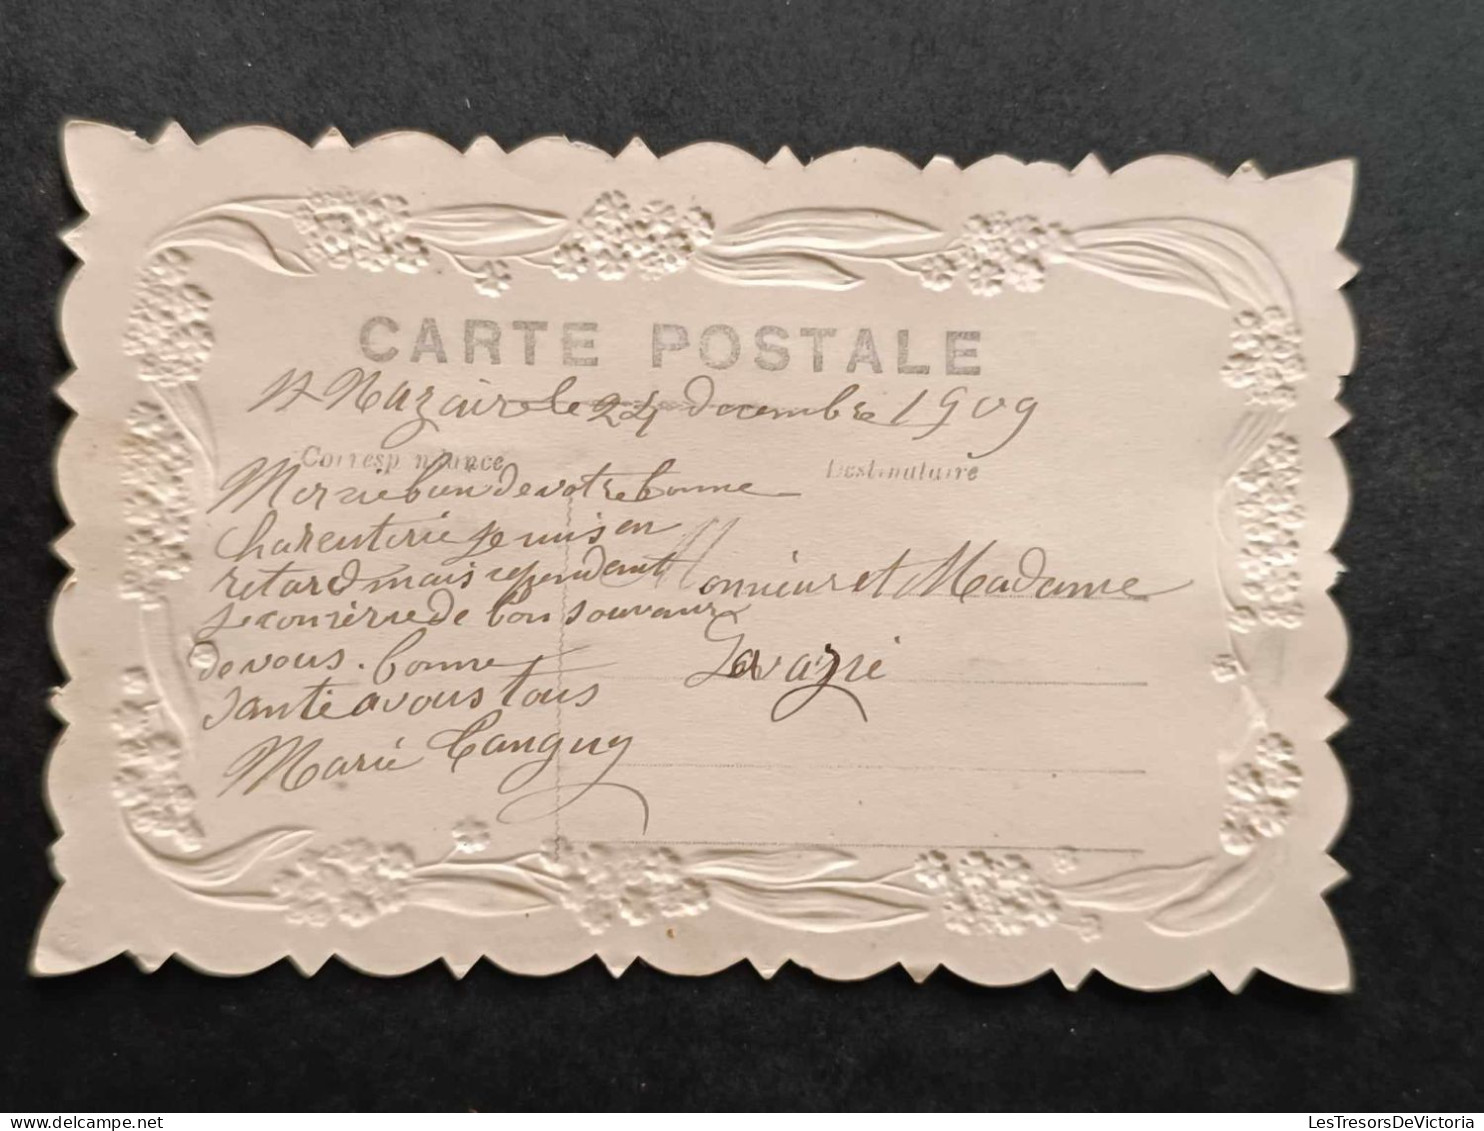 CARTE POSTALE
St Nazaire le 24 decembre 1909
Correspondance
Destinataire
Mersie bien de votre bonne
charenterie je mis en
retard mais cependent
je conserve de bon souvenir
de vous. bonne
santé a vous tous
Marie Tanguy
Monsieur et Madame
Lavazié
LesTresorsDeVictoria